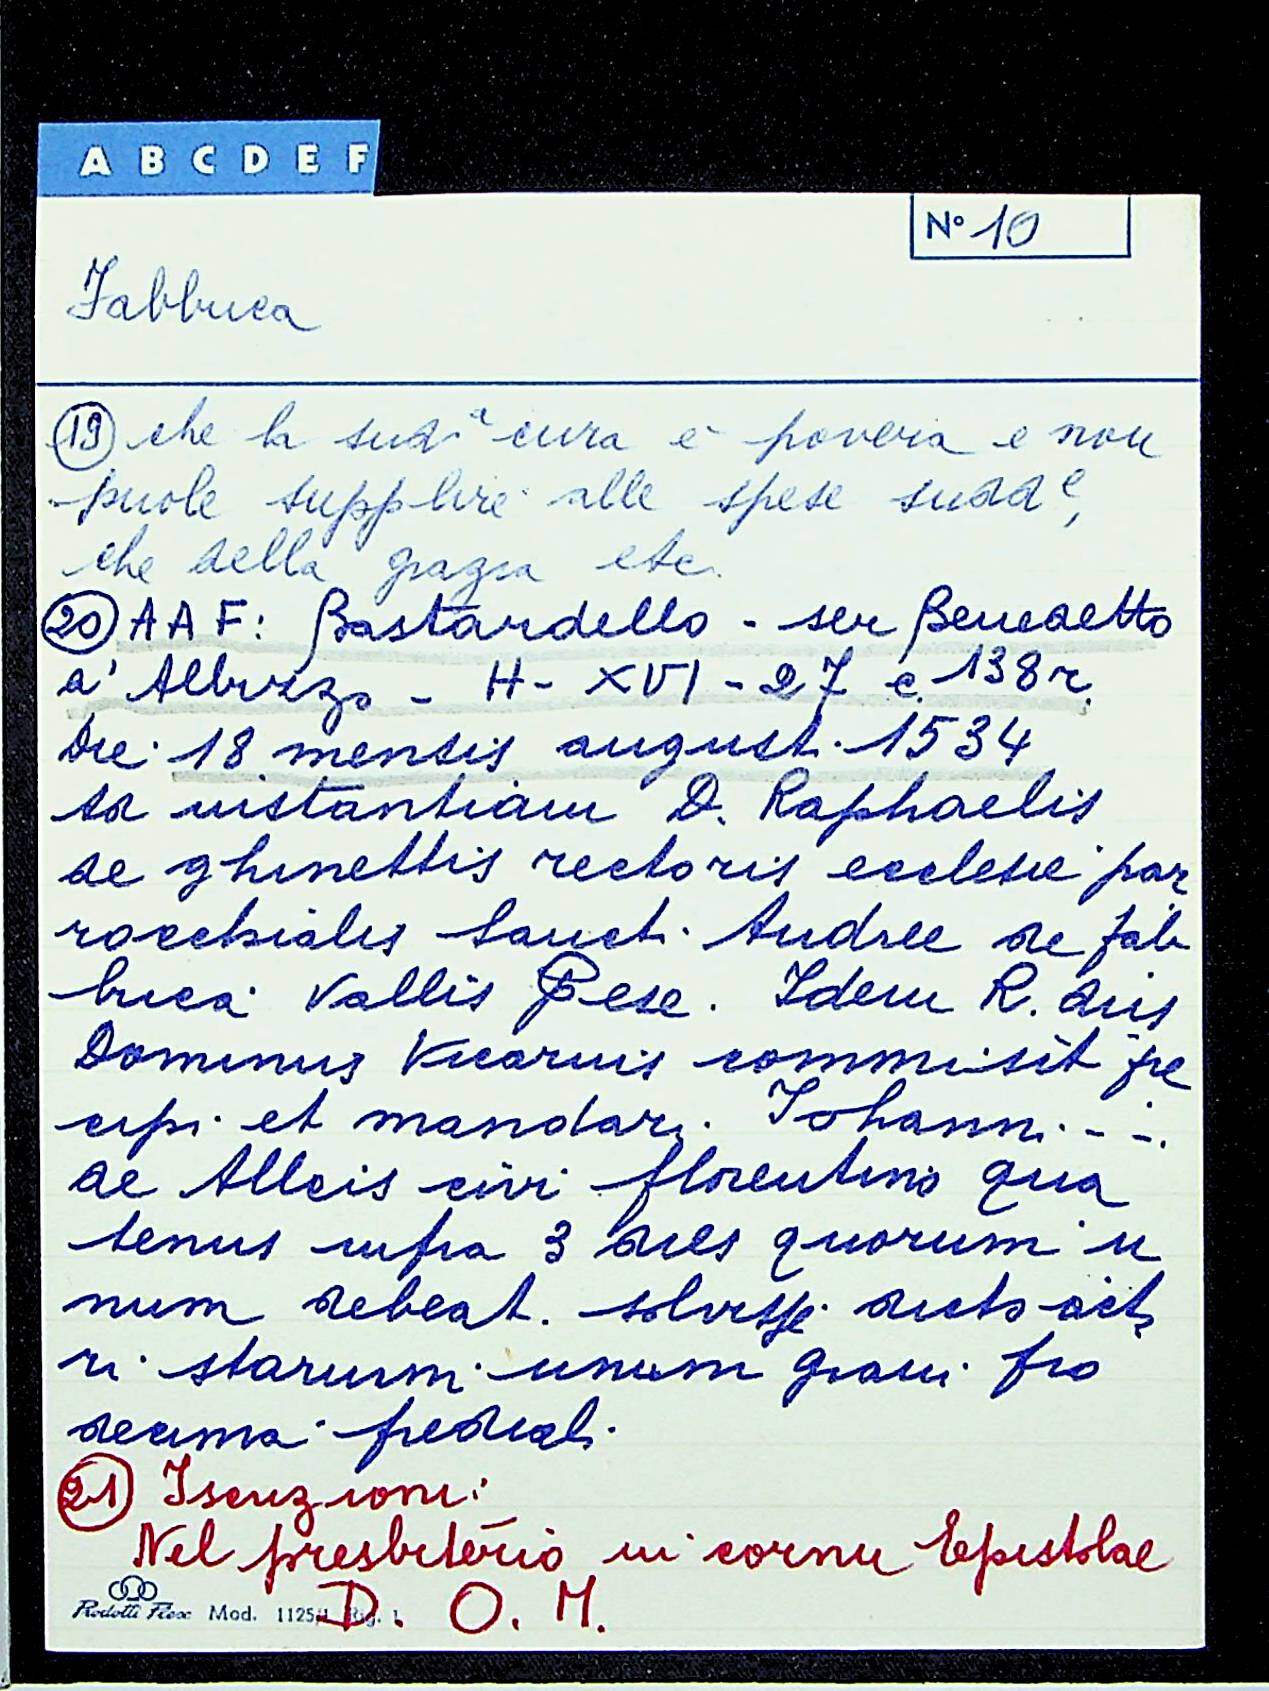 A B C D E F
N° 10
Fabbrica
(19) che la sudᵃ cura è povera e non
puole supplire alle spese suddᵉ,
che della grazia etc.
(20) AAF: Bastardello - ser Benedetto
d'Albizzo - H - XVI - 27 c. 138 r.
Die 18 mensis august. 1534
ad instantiam D. Raphaelis
de ghinettis rectoris ecclesie par
rocchialis Sancti Andree de fab
brica Vallis Pese. Idem R. dus
Dominus Vicarius commisit pre
cipi et mandari Iohanni - -.
de Alleis civi florentino qua
tenus infra 3 dies quorum u
num debeat. solvisse dicto acto
ri starium unum grani pro
decima prediali.
(21) Iscrizioni:
Nel presbiterio in cornu Epistolae
D. O. M.
Prodotti Flex Mod. 1125/1 Rig. 1